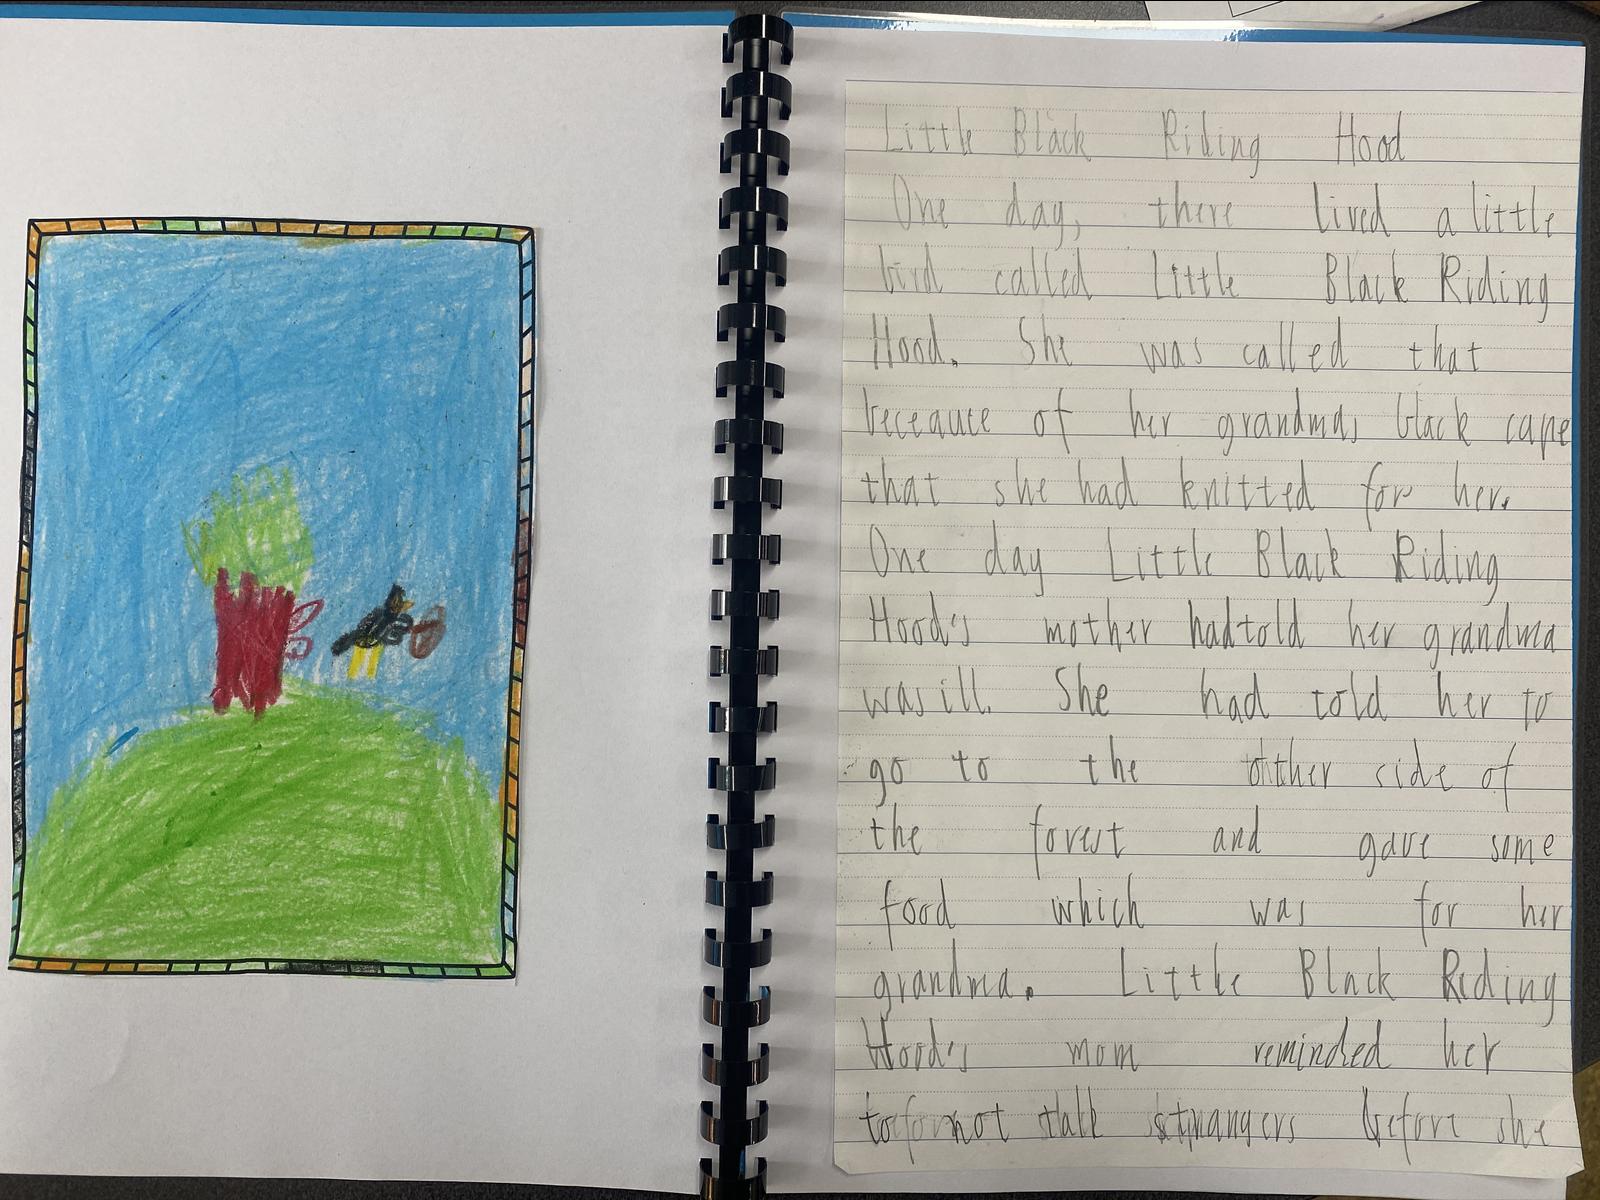 Little Black Riding Hood
One day, there lived a little
bird called Little Black Riding
Hood. She was called that
beceause of her grandmas black cape
that she had knitted for her.
One day Little Black Riding
Hood's mother had told her grandma
was ill. She had told her to
go to the other side of
the forest and gave some
food which was for her
grandma. Little Black Riding
Hood's mom reminded her
to not talk strangers before she